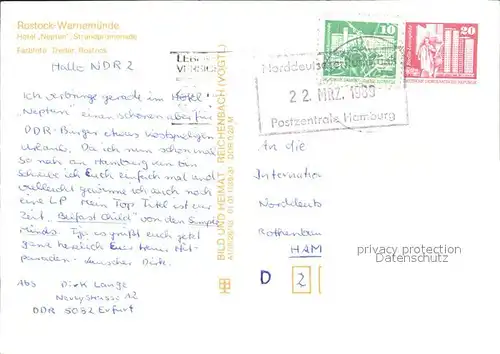 Rostock-Warnemünde
Hotel „Neptun", Strandpromenade
Farbfoto: Dreßler, Rostock
Hallo NDR 2
Ich verbringe gerade im Hotel
"Neptun" einen schönen aber für
DDR-Bürger etwas kostspieligen
Urlaub. Da ich nun schon mal
so nah an Hamburg ran bin
schreibe ich Euch einfach mal und
vielleicht gewinne ich auch noch
eine LP. Mein Top Titel ist zur
Zeit "Belfast Child" von den Simple
Minds. Tja es grüßt euch jetzt
ganz herzlich Euer treuer Hit-
paraden-
Dirk.
Abs Dirk Lange
12
DDR 5082 Erfurt
BILD UND HEIMAT REICHENBACH (VOGTL)
10
20
Norddeutscher Rundfunk
22. MRZ. 1989
Postzentrale Hamburg
An die
Internation
Norddeuts
Rothenbau
HAM
D 2
privacy protection
Sammler.com